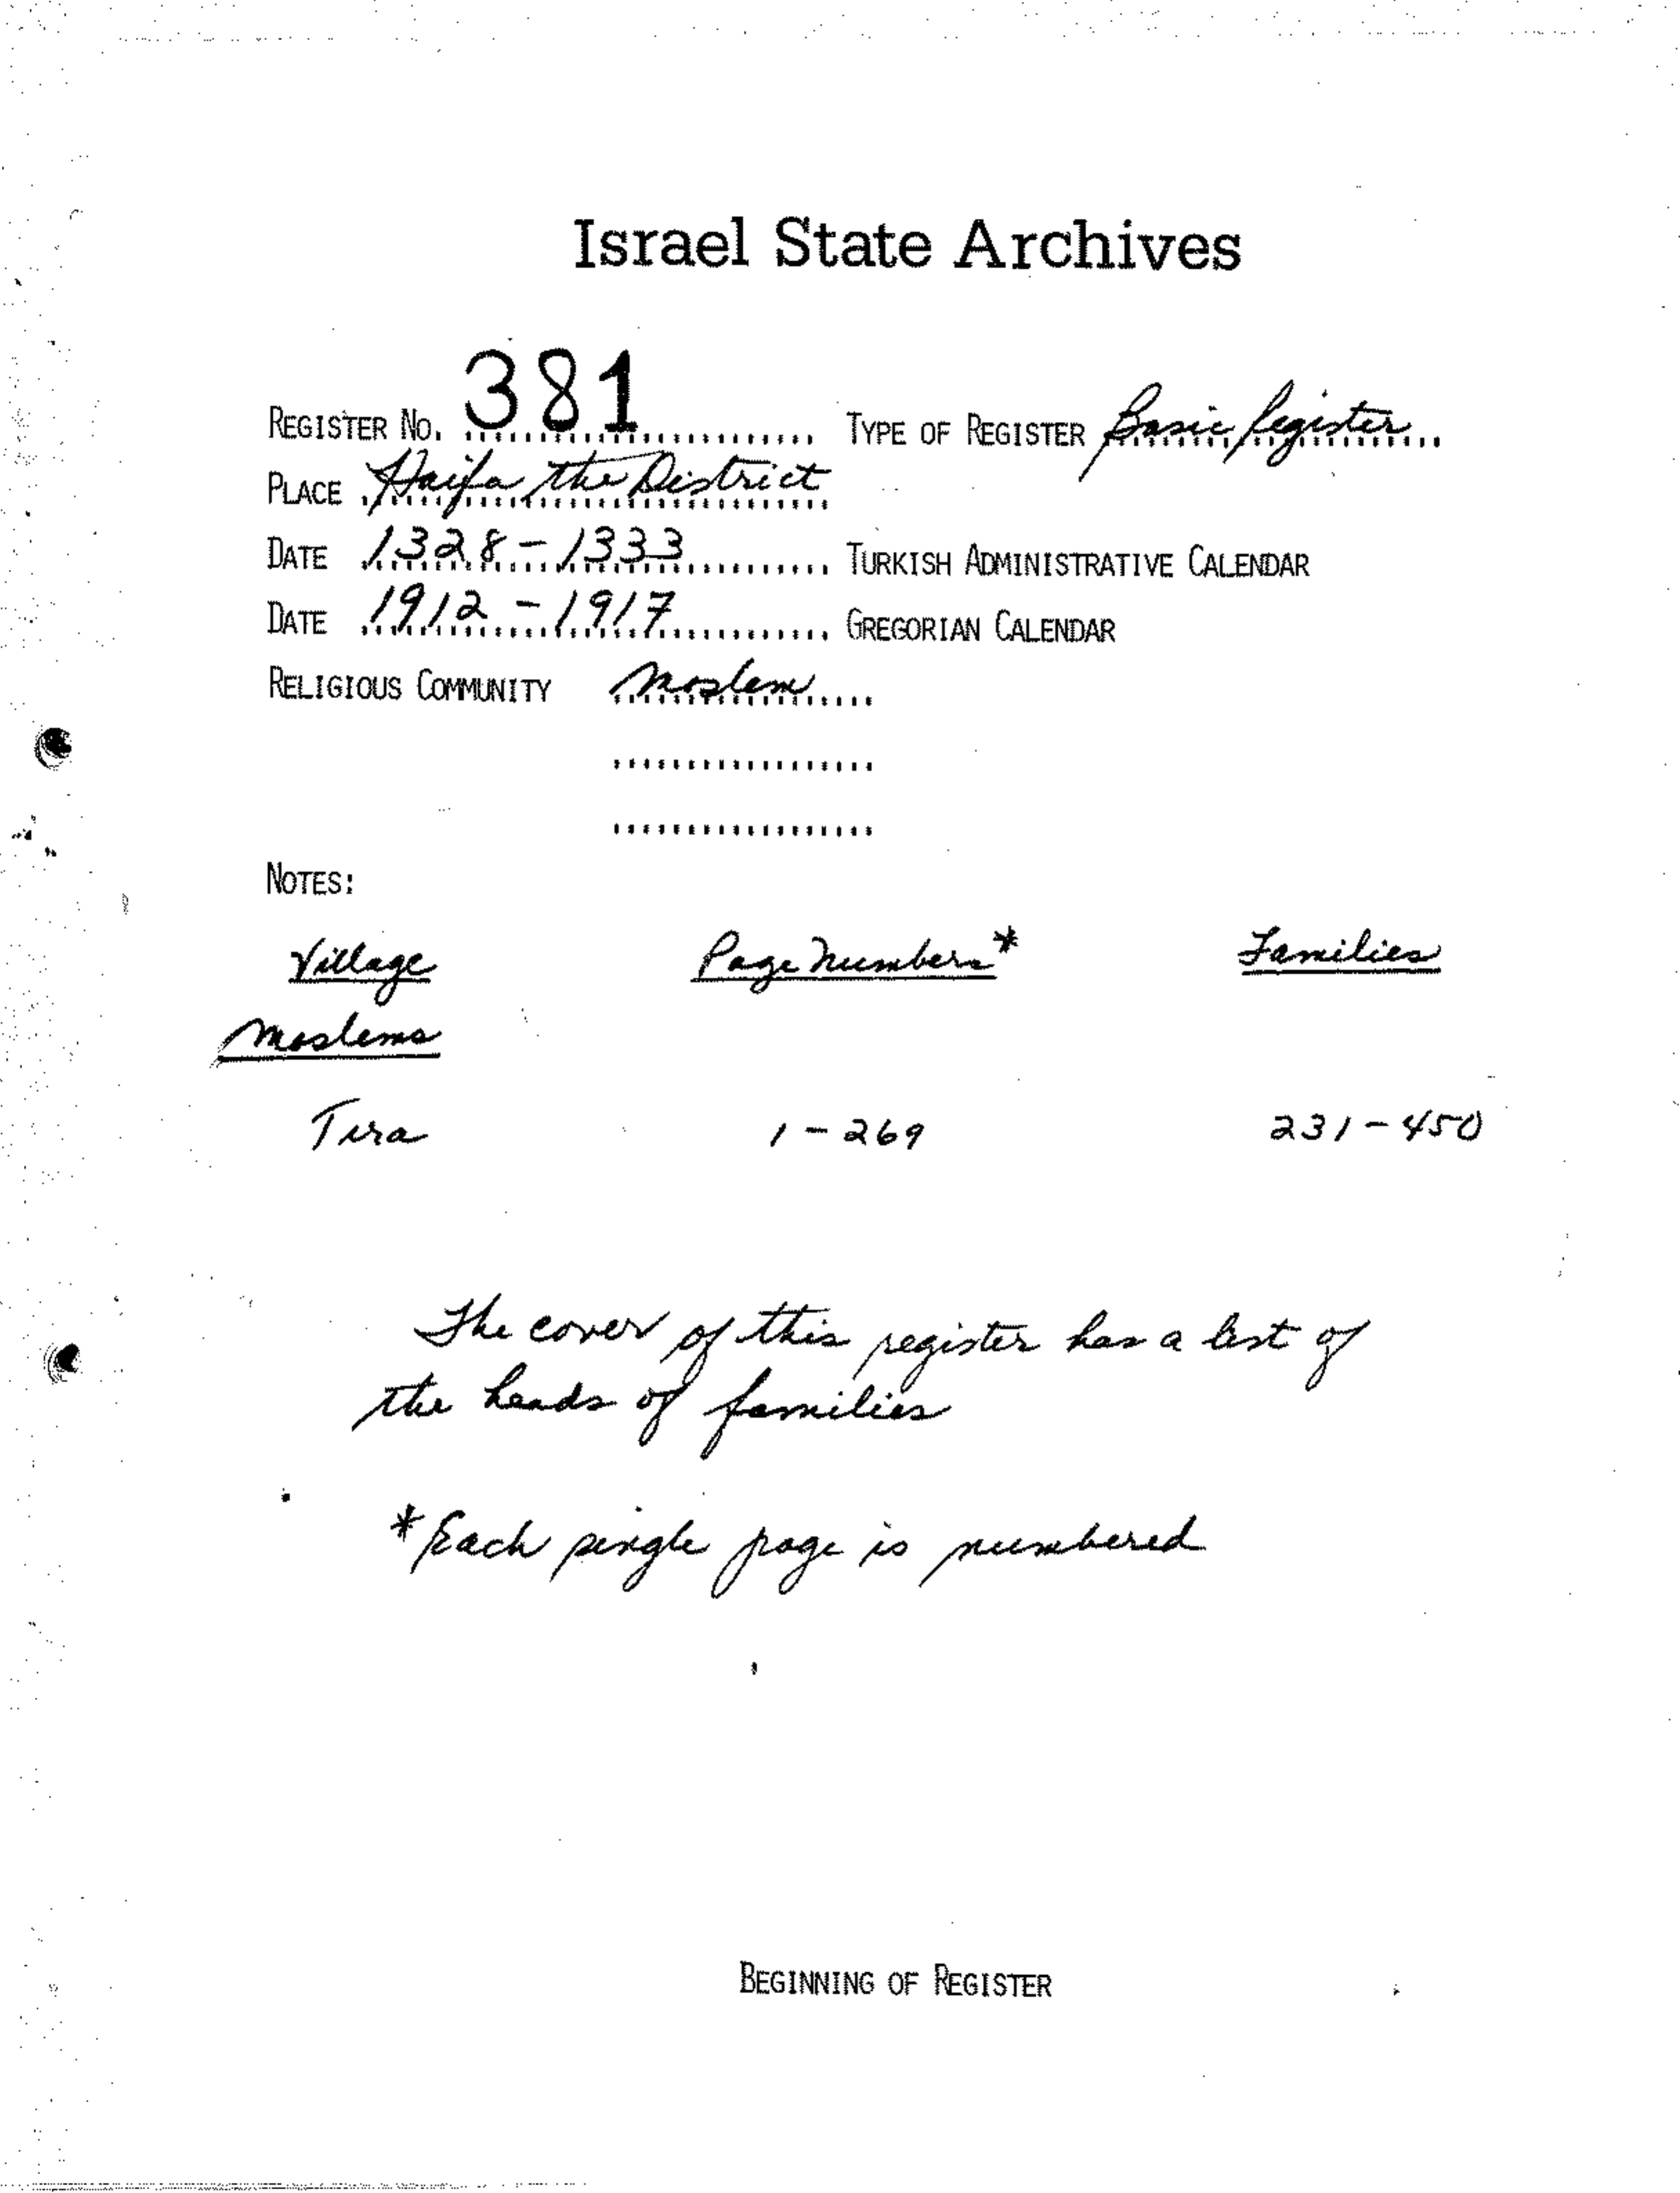 Israel State Archives
REGISTER NO. 381 TYPE OF REGISTER Basic Register
PLACE Haifa the District
DATE 1328-1333 TURKISH ADMINISTRATIVE CALENDAR
DATE 1912-1917 GREGORIAN CALENDAR
RELIGIOUS COMMUNITY Moslem
NOTES:
Village Page Numbers* Families
Moslems
Tira 1-269 231-450
The cover of this register has a list of
the heads of families
*Each single page is numbered
BEGINNING OF REGISTER